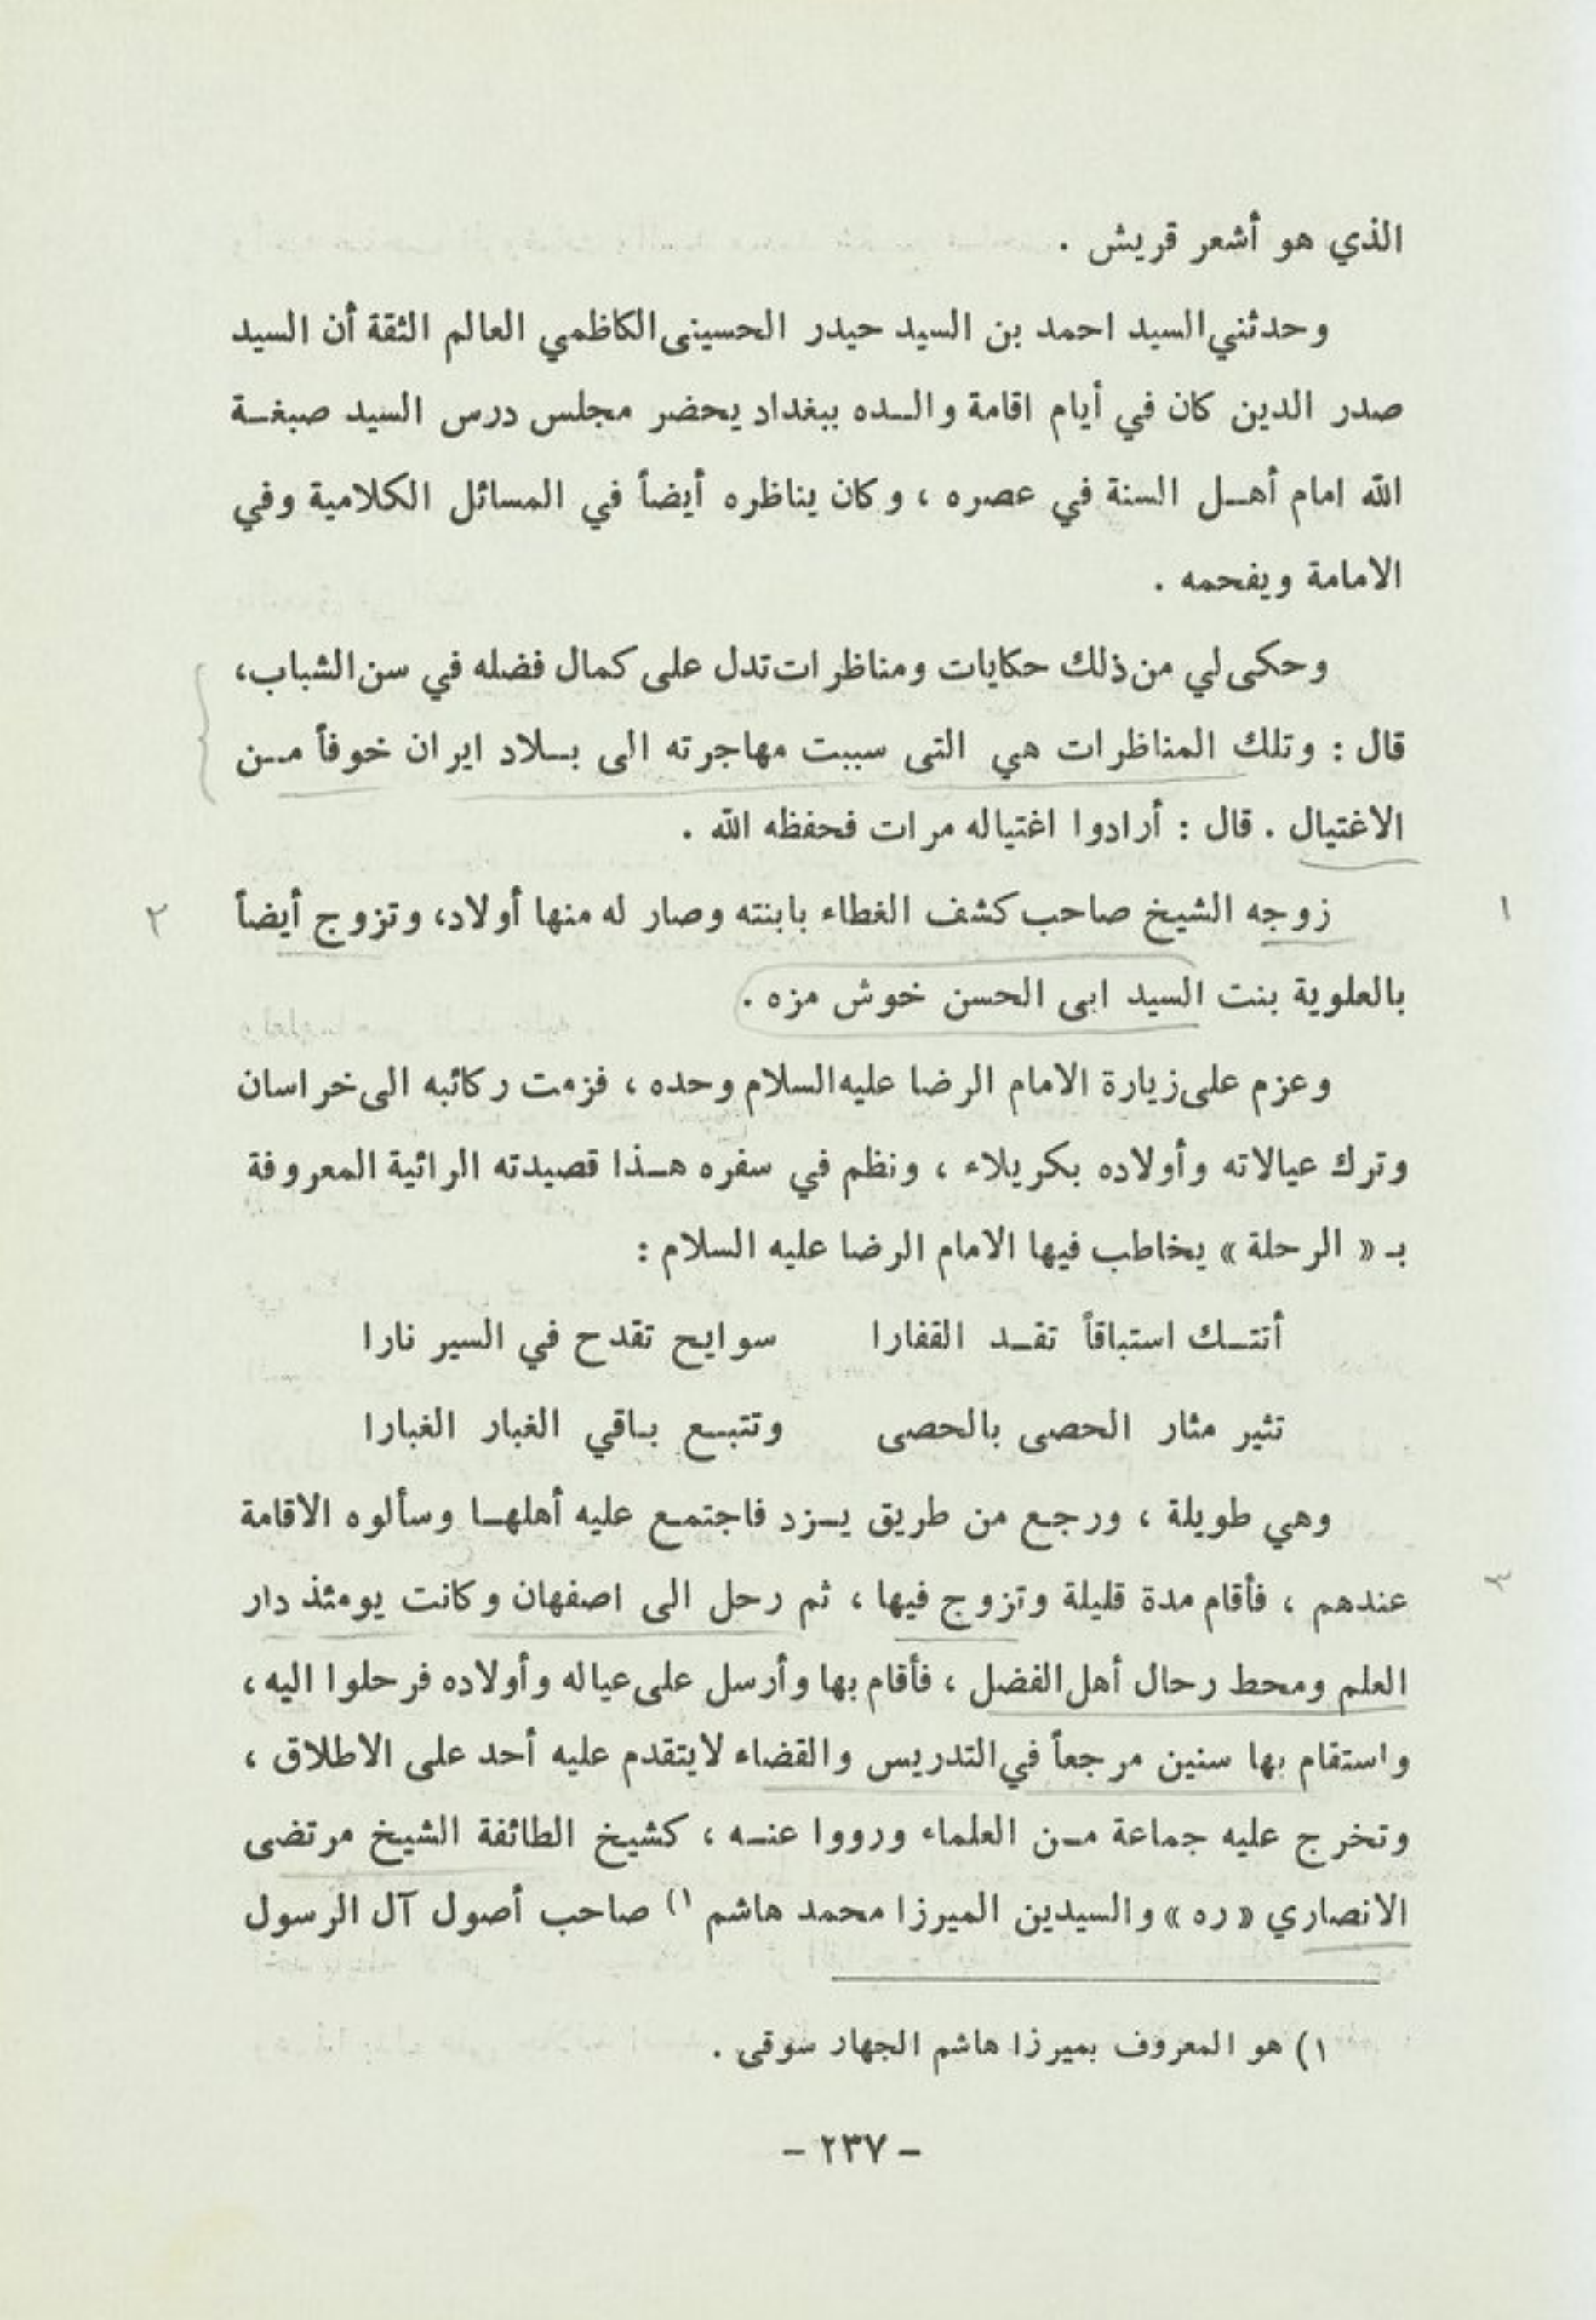 الذي هو أشعر قريش .
وحدثني السيد احمد بن السيد حيدر الحسينى الكاظمي العالم الثقة أن السيد
صدر الدين كان في أيام اقامة والـده ببغداد يحضر مجلس درس السيد صبغـة
الله امام أهـل السنة في عصره ، وكان يناظره أيضاً في المسائل الكلامية وفي
الامامة ويفحمه .
وحكى لي من ذلك حكايات ومناظرات تدل على كمال فضله في سن الشباب،
قال : وتلك المناظرات هي التى سببت مهاجرته الى بـلاد ايران خوفاً مـن
الاغتيال . قال : أرادوا اغتياله مرات فحفظه الله .
١ زوجه الشيخ صاحب كشف الغطاء بابنته وصار له منها أولاد، وتزوج أيضاً ٢
بالعلوية بنت السيد ابى الحسن خوش مزه .
وعزم على زيارة الامام الرضا عليه السلام وحده ، فزمت ركائبه الى خراسان
وترك عيالاته وأولاده بكربلاء ، ونظم في سفره هـذا قصيدته الرائية المعروفة
بـ « الرحلة » يخاطب فيها الامام الرضا عليه السلام :
أتتـك استباقاً تقـد القفارا سوايح تقدح في السير نارا
تثير مثار الحصى بالحصى وتتبـع بـاقي الغبار الغبارا
وهي طويلة ، ورجع من طريق يـزد فاجتمع عليه أهلهـا وسألوه الاقامة
٣ عندهم ، فأقام مدة قليلة وتزوج فيها ، ثم رحل الى اصفهان وكانت يومئذ دار
العلم ومحط رحال أهل الفضل ، فأقام بها وأرسل على عياله وأولاده فرحلوا اليه ،
واستقام بها سنين مرجعاً في التدريس والقضاء لايتقدم عليه أحد على الاطلاق ،
وتخرج عليه جماعة مـن العلماء ورووا عنـه ، كشيخ الطائفة الشيخ مرتضى
الانصاري « ره » والسيدين الميرزا محمد هاشم ١) صاحب أصول آل الرسول
١) هو المعروف بميرزا هاشم الجهار سوقى .
– ٢٣٧ –